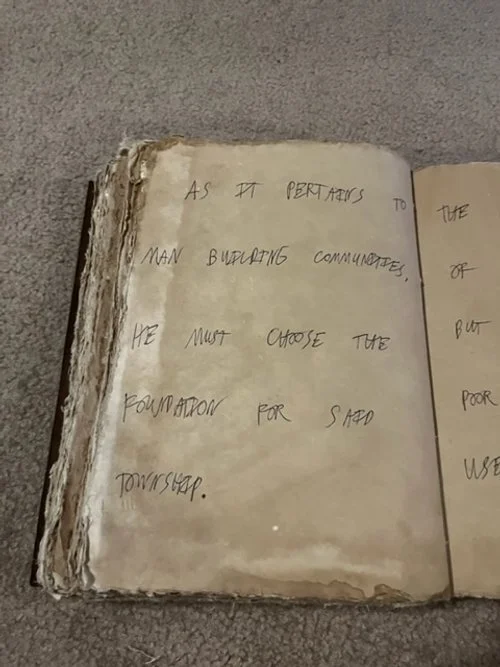 AS IT PERTAINS TO
MAN BUILDING COMMUNITIES,
HE MUST CHOOSE THE
FOUNDATION FOR SAID
TOWNSHIP.
THE
OF
BUT
POOR
USE